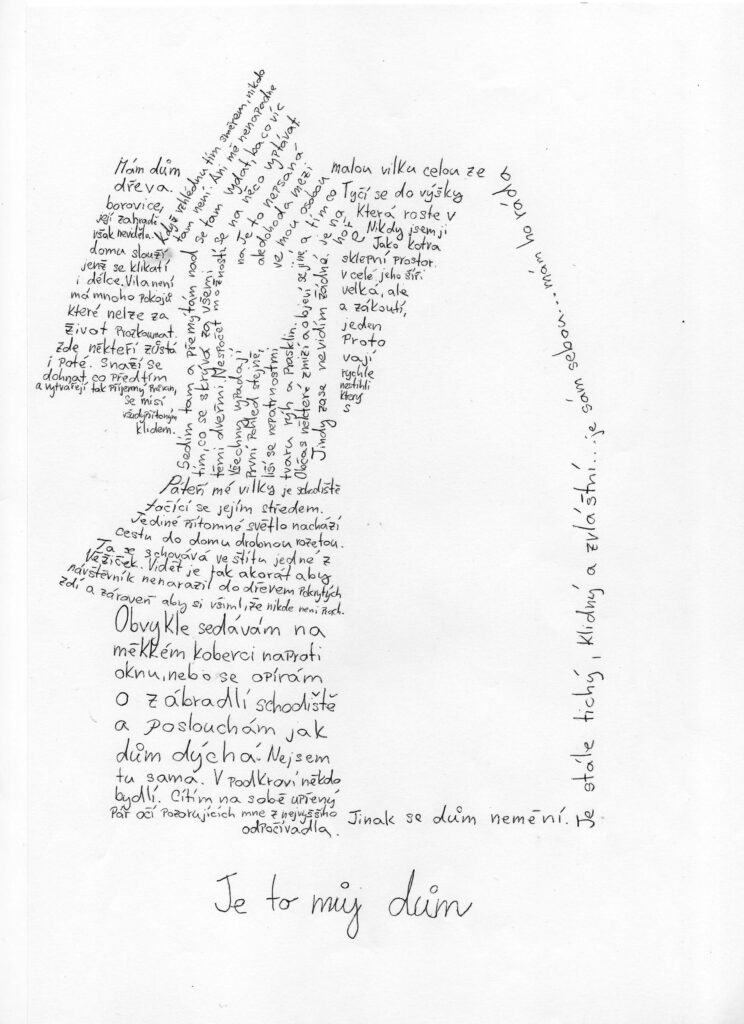 Mám dům malou vilku celou ze
dřeva. Tyčí se do výšky
borovice, která roste v
její zahradě Nikdy jsem ji
však neviděla. Jako kotva
domu slouží sklepní prostor.
jenž se klikatí v celé jeho šíři
i délce. Vila není velká, ale
má mnoho pokojů a zákoutí,
které nelze za jeden
život prozkoumat. Proto
zde někteří zůstá vají
i poté. Snaží se rychle
dohnat, co předtím nestihli
a vytvářejí tak příjemný průvan, který
se mísí s
všudypřítomným
klidem.
Páteří mé vilky je schodiště
točící se jejím středem.
Jediné přítomné světlo nachází
cestu do domu drobnou rozetou.
Ta se schovává ve štítu jedné z
věžiček. Vidět je tak akorát aby
návštěvník nenarazil do dřevem pokrytých
zdí a zároveň aby si všiml, že nikde není prach.
Obvykle sedávám na
měkkém koberci naproti
oknu, nebo se opírám
o zábradlí schodiště
a poslouchám jak
dům dýchá. Nejsem
tu sama. V podkroví někdo
bydlí. Cítím na sobě upřený
pár očí pozorujících mne z nejvyššího
odpočívadla.
Když vzhlédnu tím směrem, nikdo
tam není. Ani mě nenapadne
se tam vydat, ba co víc
se na něco vyptávat
Je to nepsaná
dohoda mezi
mou osobou
a tím co
je na
hoře
Sedím tam a přemýtám nad
tím, co se skrývá za všemi
těmi dveřmi. Nespočet možností.
Všechny vypadají na
první pohled stejně, ale
liší se nepatrnostmi ve
tvaru rýh a prasklin.
Občas některé zmizí a objeví se jiné
Jindy zase nevidím žádné.
Jinak se dům nemění.
Je stále tichý, klidný a zvláštní... je sám sebou... mám ho ráda
Je to můj dům